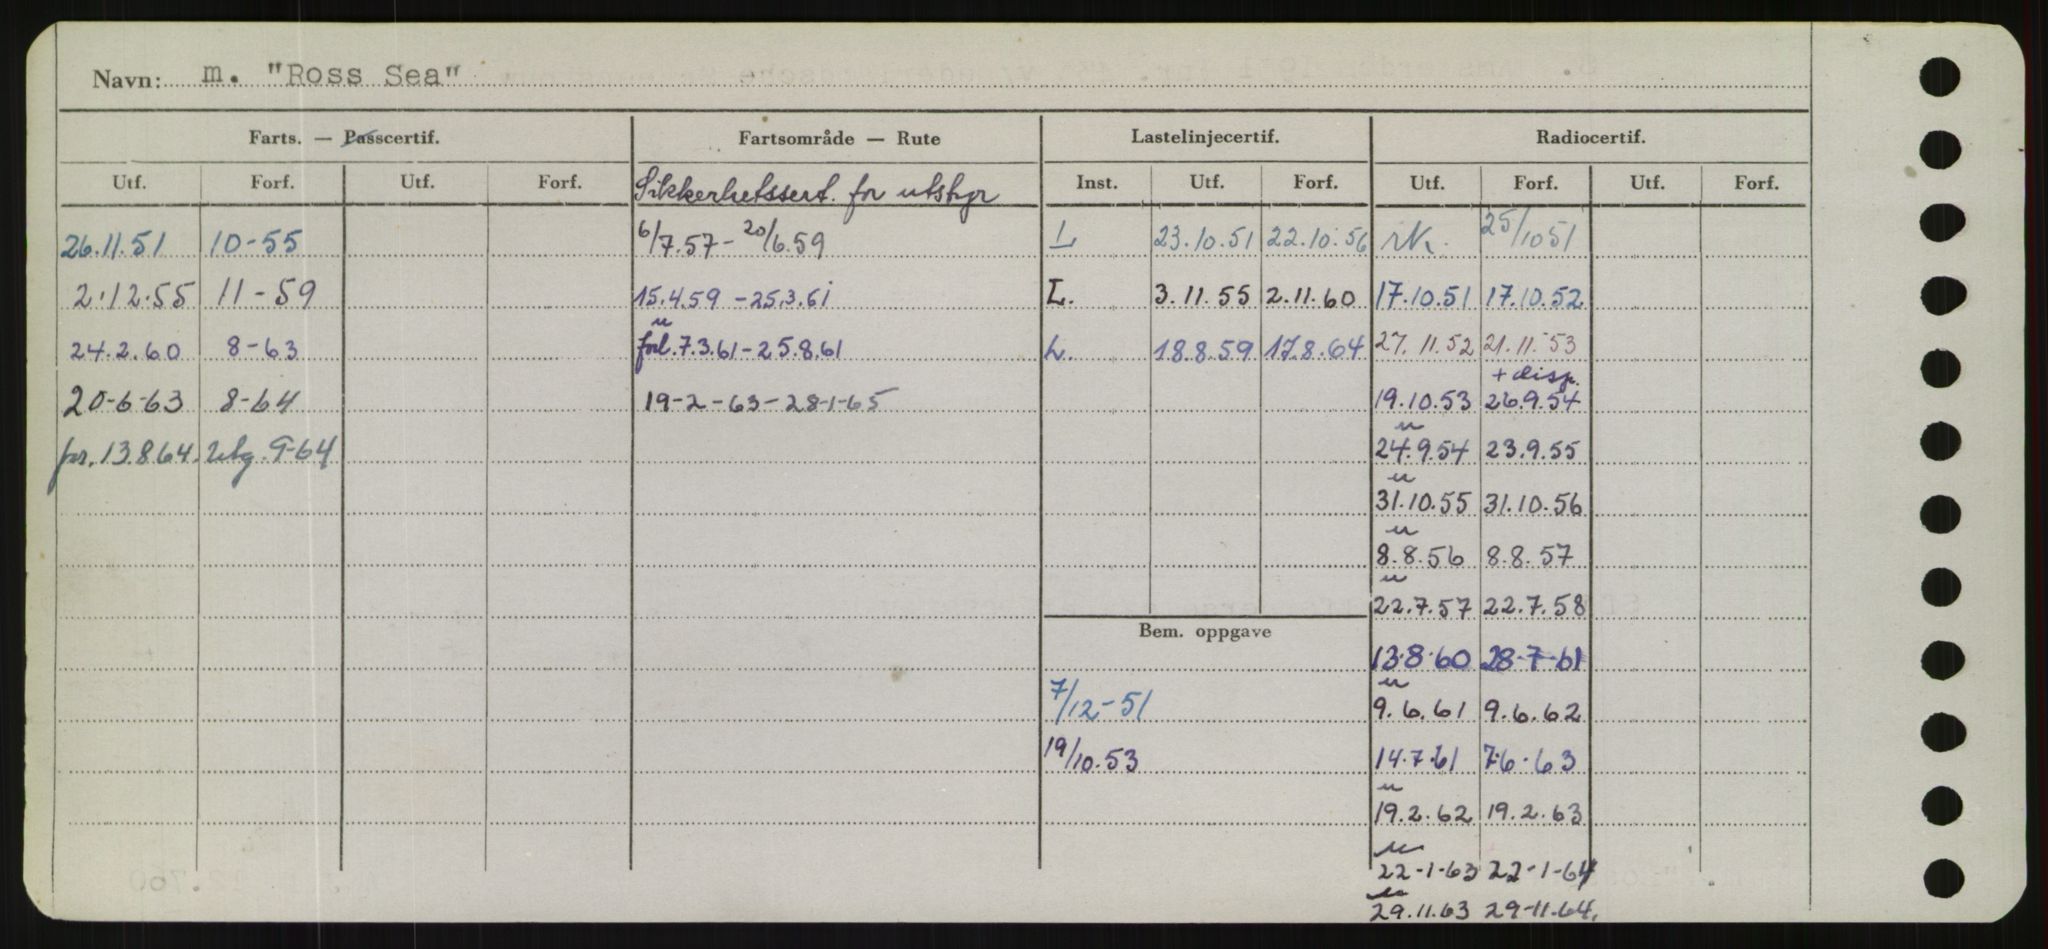 Navn: m. "Ross Sea"
Farts. — Passcertif. Fartsområde — Rute Lastelinjecertif. Radiocertif.
Utf. Forf. Utf. Forf. Sikkerhetssert. for utstyr Inst. Utf. Forf. Utf. Forf. Utf. Forf.
26.11.51 10-55 6/7.57-20/6.59 L 23.10.51 22.10.56 rk. 25/10 51
2.12.55 11-59 15.4.59-25.3.61 L. 3.11.55 2.11.60 17.10.51 17.10.52
u
24.2.60 8-63 forl. 7.3.61-25.8.61 L. 18.8.59 17.8.64 27.11.52 21.11.53
+ disp.
20-6-63 8-64 19-2-63-28-1-65 19.10.53 26.9.54
u
for. 13.8.64. utg. 9-64 24.9.54 23.9.55
u
31.10.55 31.10.56
u
8.8.56 8.8.57
u
22.7.57 22.7.58
Bem. oppgave
13.8.60 28.7.61
u
7/12-51 9.6.61 9.6.62
19/10.53 14.7.61 7.6.63
u
19.2.62 19.2.63
u
22-1-63 22-1-64
u
29.11.63 29-11-64.